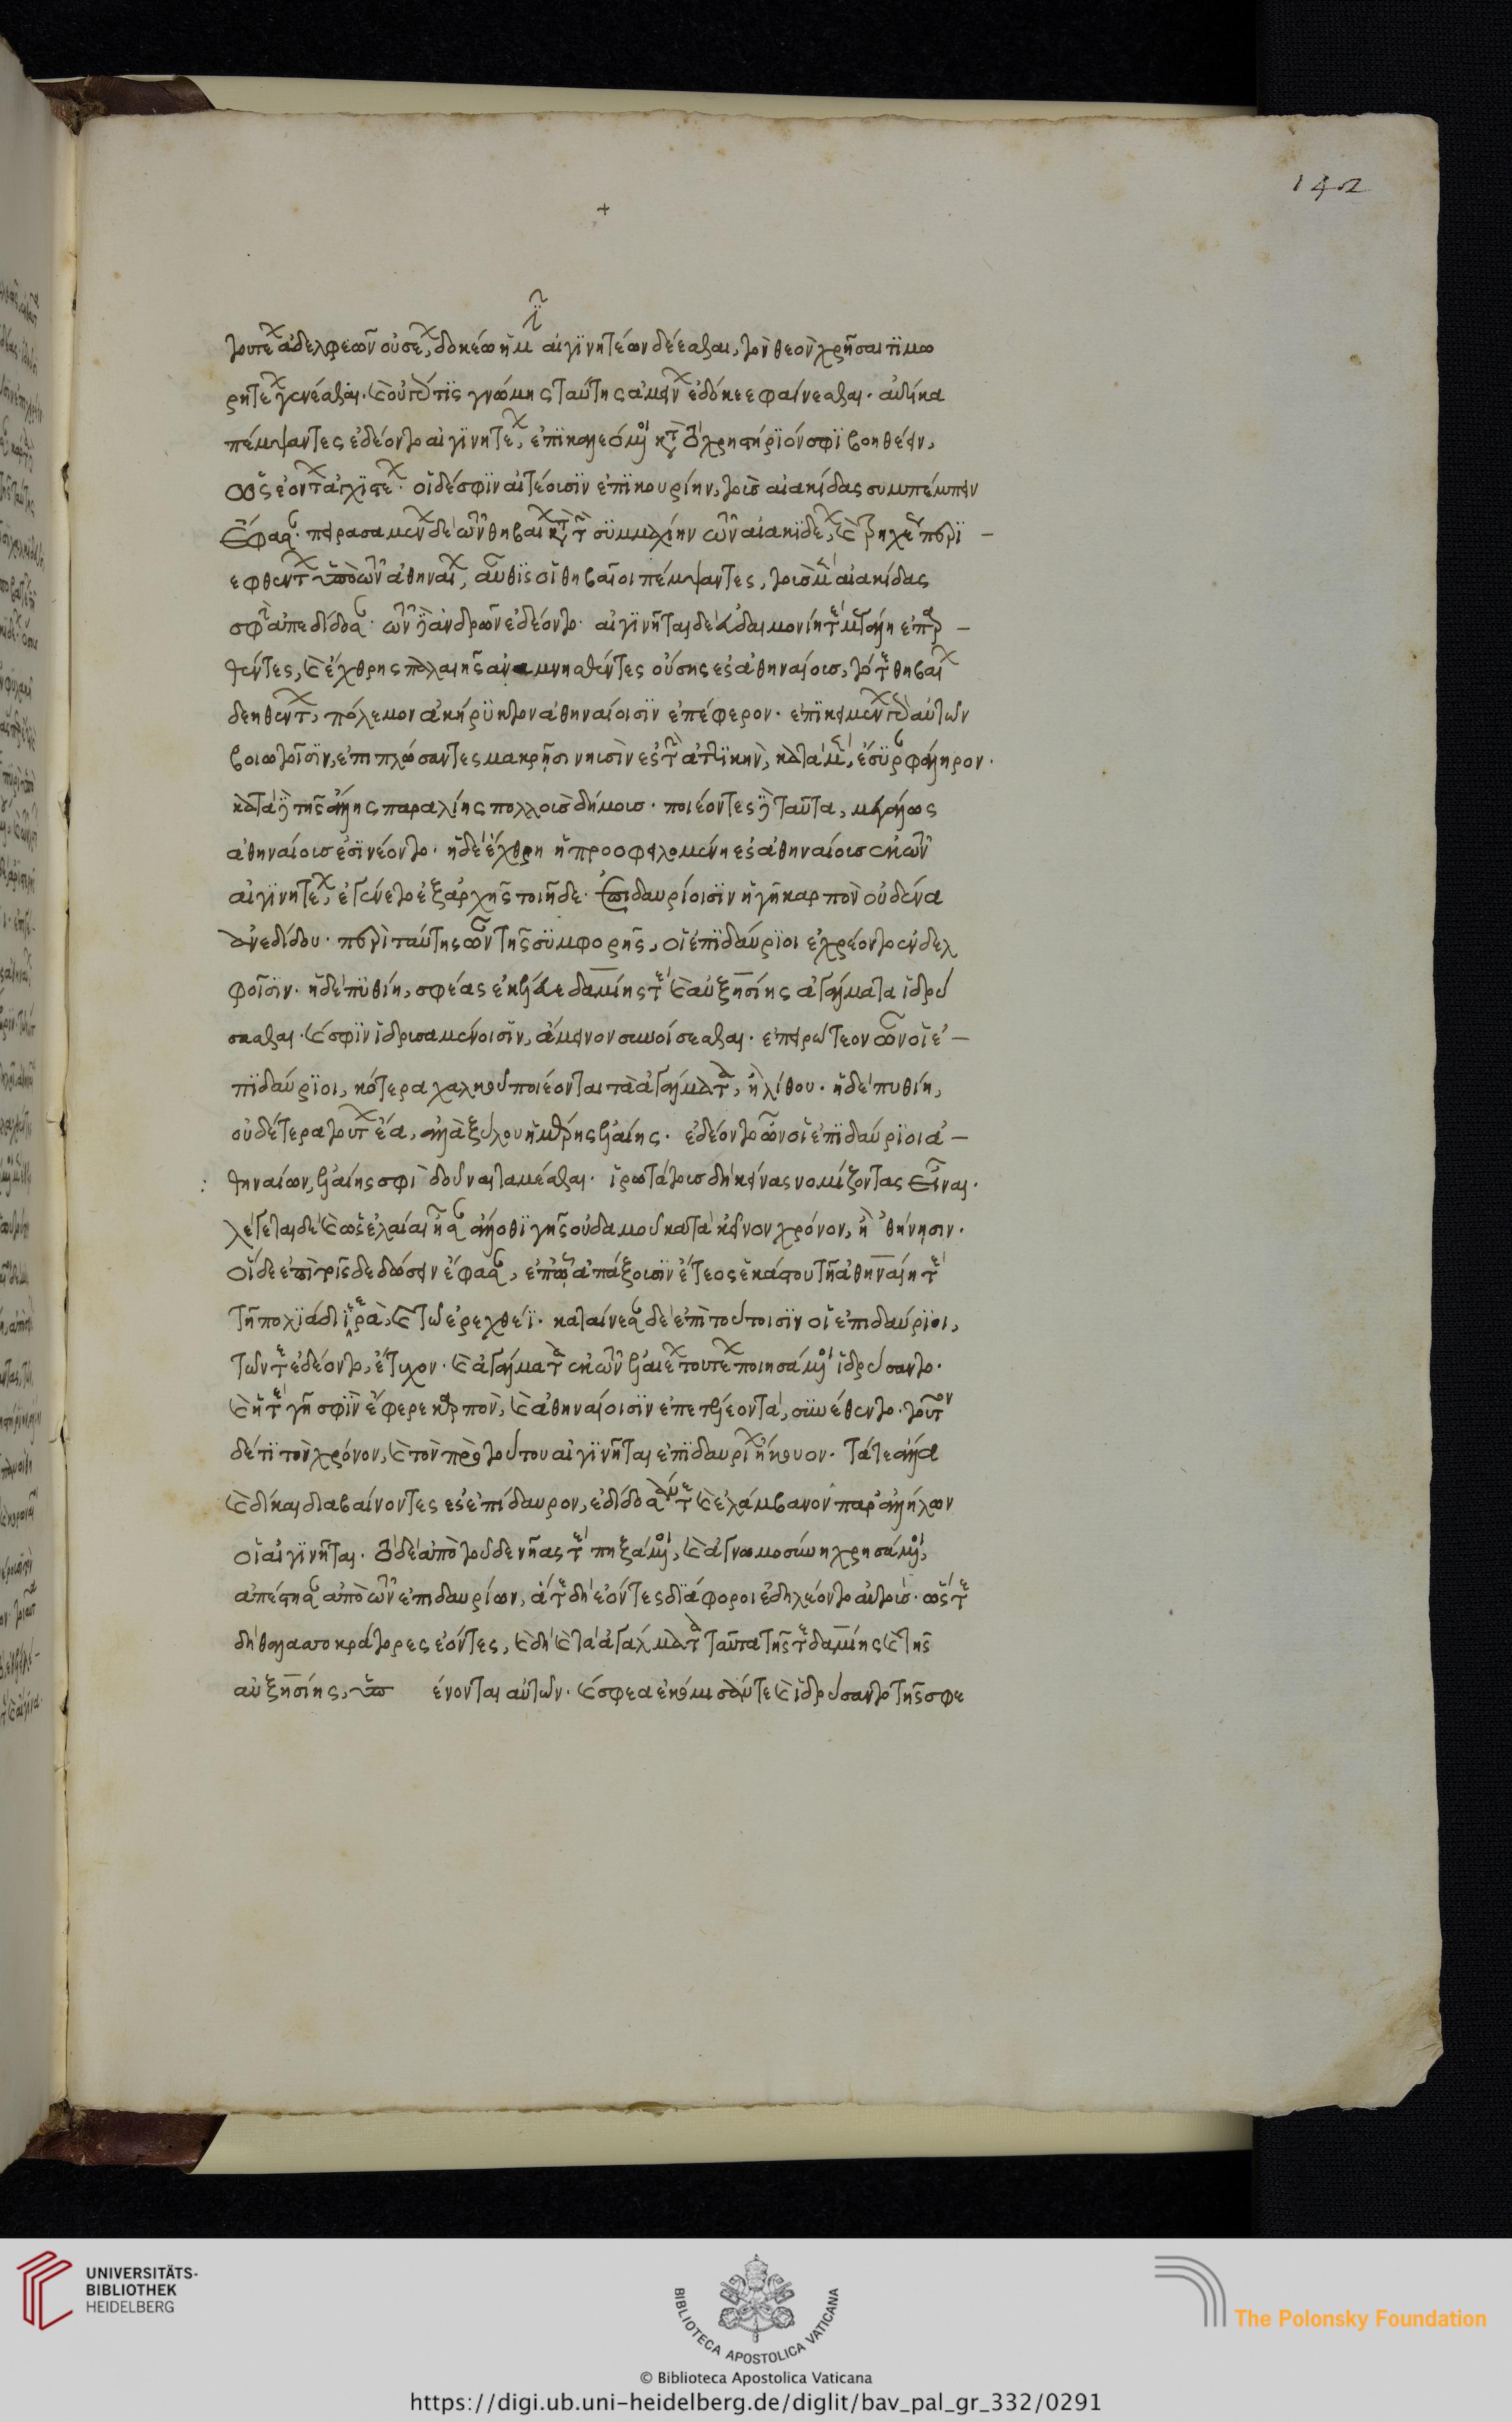 τουτέων ἀδελφεῶν οὐσέων, δοκέω ἡμῖν αἰγινητέων δέεσθαι, τὸν θεὸν χρῆσαι τιμω
ρητέων γενέσθαι. καὶ οὐ γάρ τις γνώμης ταύτης ἀμείνων ἐδόκεε φαίνεσθαι. αὐτίκα
πέμψαντες ἐδέοντο αἰγινητέων, ἐπικαλεόμενοι κατὰ τὸ χρηστήριόν σφι βοηθέειν,
ὡς ἐόντων ἀγχιστέων. οἱ δέ σφιν αἰτέουσιν ἐπικουρίην, τοὺς αἰακίδας συμπέμπειν
ἔφασαν. πειρασαμένων δὲ τῶν θηβαίων κατὰ τὴν συμμαχίην τῶν αἰακιδέων, καὶ τρηχέως περι –
εφθέντων ὑπὸ τῶν ἀθηναίων, αὖθις οἱ θηβαῖοι πέμψαντες, τοὺς μὲν αἰακίδας
σφὶ ἀπεδίδοσαν. τῶν δὲ ἀνδρῶν ἐδέοντο. αἰγινῆται δὲ εὐδαιμονίη τε μεγάλη ἐπαρ –
θέντες, καὶ ἔχθρης παλαιῆς ἀναμνησθέντες οὔσης ἐς ἀθηναίους, τότε θηβαίων
δεηθέντων, πόλεμον ἀκήρυκτον ἀθηναίοισιν ἐπέφερον. ἐπικειμένων γὰρ αὐτῶν
βοιωτοῖσιν, ἐπιπλώσαντες μακρῇσι νηυσὶν ἐς τὴν ἀττικὴν, κατὰ μὲν ἔσυραν φάληρον.
κατὰ δὲ τῆς ἄλλης παραλίης πολλοὺς δήμους. ποιέοντες δὲ ταῦτα, μεγάλως
ἀθηναίους ἐσινέοντο. ἡ δὲ ἔχθρη ἡ προσφειλομένη ἐς ἀθηναίους ἐκ τῶν
αἰγινητέων, ἐγένετο ἐξ ἀρχῆς τοιῆσδε. ἐπιδαυρίοισιν ἡ γῆ καρπὸν οὐδένα
ἀνεδίδου. περὶ ταύτης ὦν τῆς συμφορῆς, οἱ ἐπιδαύριοι ἐχρέοντο ἐν δελ
φοῖσιν. ἡ δὲ πυθίη, σφέας ἐκέλευε δαμίης τε καὶ αὐξησίης ἀγάλματα ἱδρύ
σασθαι. καί σφιν ἱδρυσαμένοισιν, ἄμεινον συνοίσεσθαι. ἐπειρώτεον ὦν οἱ ἐ –
πιδαύριοι, κότερα χαλκοῦ ποιέονται τὰ ἀγάλματα, ἢ λίθου. ἡ δὲ πυθίη,
οὐδέτερα τουτέων ἔα, ἀλλὰ ξύλου ἡμέρης ἐλαίης. ἐδέοντο ὦν οἱ ἐπιδαύριοι ἀ –
θηναίων, ἐλαίης σφὶ δοῦναι ταμέσθαι. ἱρωτάτους δὴ κείνας νομίζοντας εἶναι.
λέγεται δὲ καὶ ὡς ἐλαίαι ἦσαν ἄλλοθι γῆς οὐδαμοῦ κατὰ κεῖνον χρόνον, ἢ ἀθήνησιν.
οἱ δὲ ἐπὶ τοῖσδε δώσειν ἔφασαν, ἐπ' ᾧ ἀπάξουσιν ἔτεος ἑκάστου τῇ ἀθηναίη τε
τῇ πολιάδι ἱερὰ, καὶ τῷ ἐρεχθέϊ. καταίνεσαν δὲ ἐπὶ τούτοισιν οἱ ἐπιδαύριοι,
τῶν τε ἐδέοντο, ἔτυχον. καὶ ἀγάλματα ἐκ τῶν ἐλαιέων τουτέων ποιησάμενοι ἱδρύσαντο.
καὶ ἥ τε γῆ σφὶν ἔφερε καρπὸν, καὶ ἀθηναίοισιν ἐπετέλεον τὰ, συνέθεντο. τοῦτον
δ' ἔτι τὸν χρόνον, καὶ τὸν πρὸ τούτου αἰγινῆται ἐπιδαυρίων ἤκουον. τά τε ἄλλα
καὶ δίκας διαβαίνοντες ἐς ἐπίδαυρον, ἐδίδοσάν τε καὶ ἐλάμβανον παρ' ἀλλήλων
οἱ αἰγινῆται. τὸ δὲ ἀπὸ τοῦδε νῆας τε πηξάμενοι, καὶ ἀγνωμοσύνη χρησάμενοι,
ἀπέστησαν ἀπὸ τῶν ἐπιδαυρίων, ἅτε δὴ ἐόντες διάφοροι ἐδηλέοντο αὐτούς. ὥστε
δὴ θαλασσοκράτορες ἐόντες, καὶ δὴ καὶ τὰ ἀγάλματα ταῦτα τῆς τε δαμίης καὶ τῆς
αὐξησίης, ὑπ ένονται αὐτῶν. καί σφεα ἐκόμισάν τε καὶ ἱδρύσαντο τῆς σφε
142
UNIVERSITÄTS-
BIBLIOTHEK
HEIDELBERG
BIBLIOTECA APOSTOLICA VATICANA
The Polonsky Foundation
© Biblioteca Apostolica Vaticana
https://digi.ub.uni-heidelberg.de/diglit/bav_pal_gr_332/0291